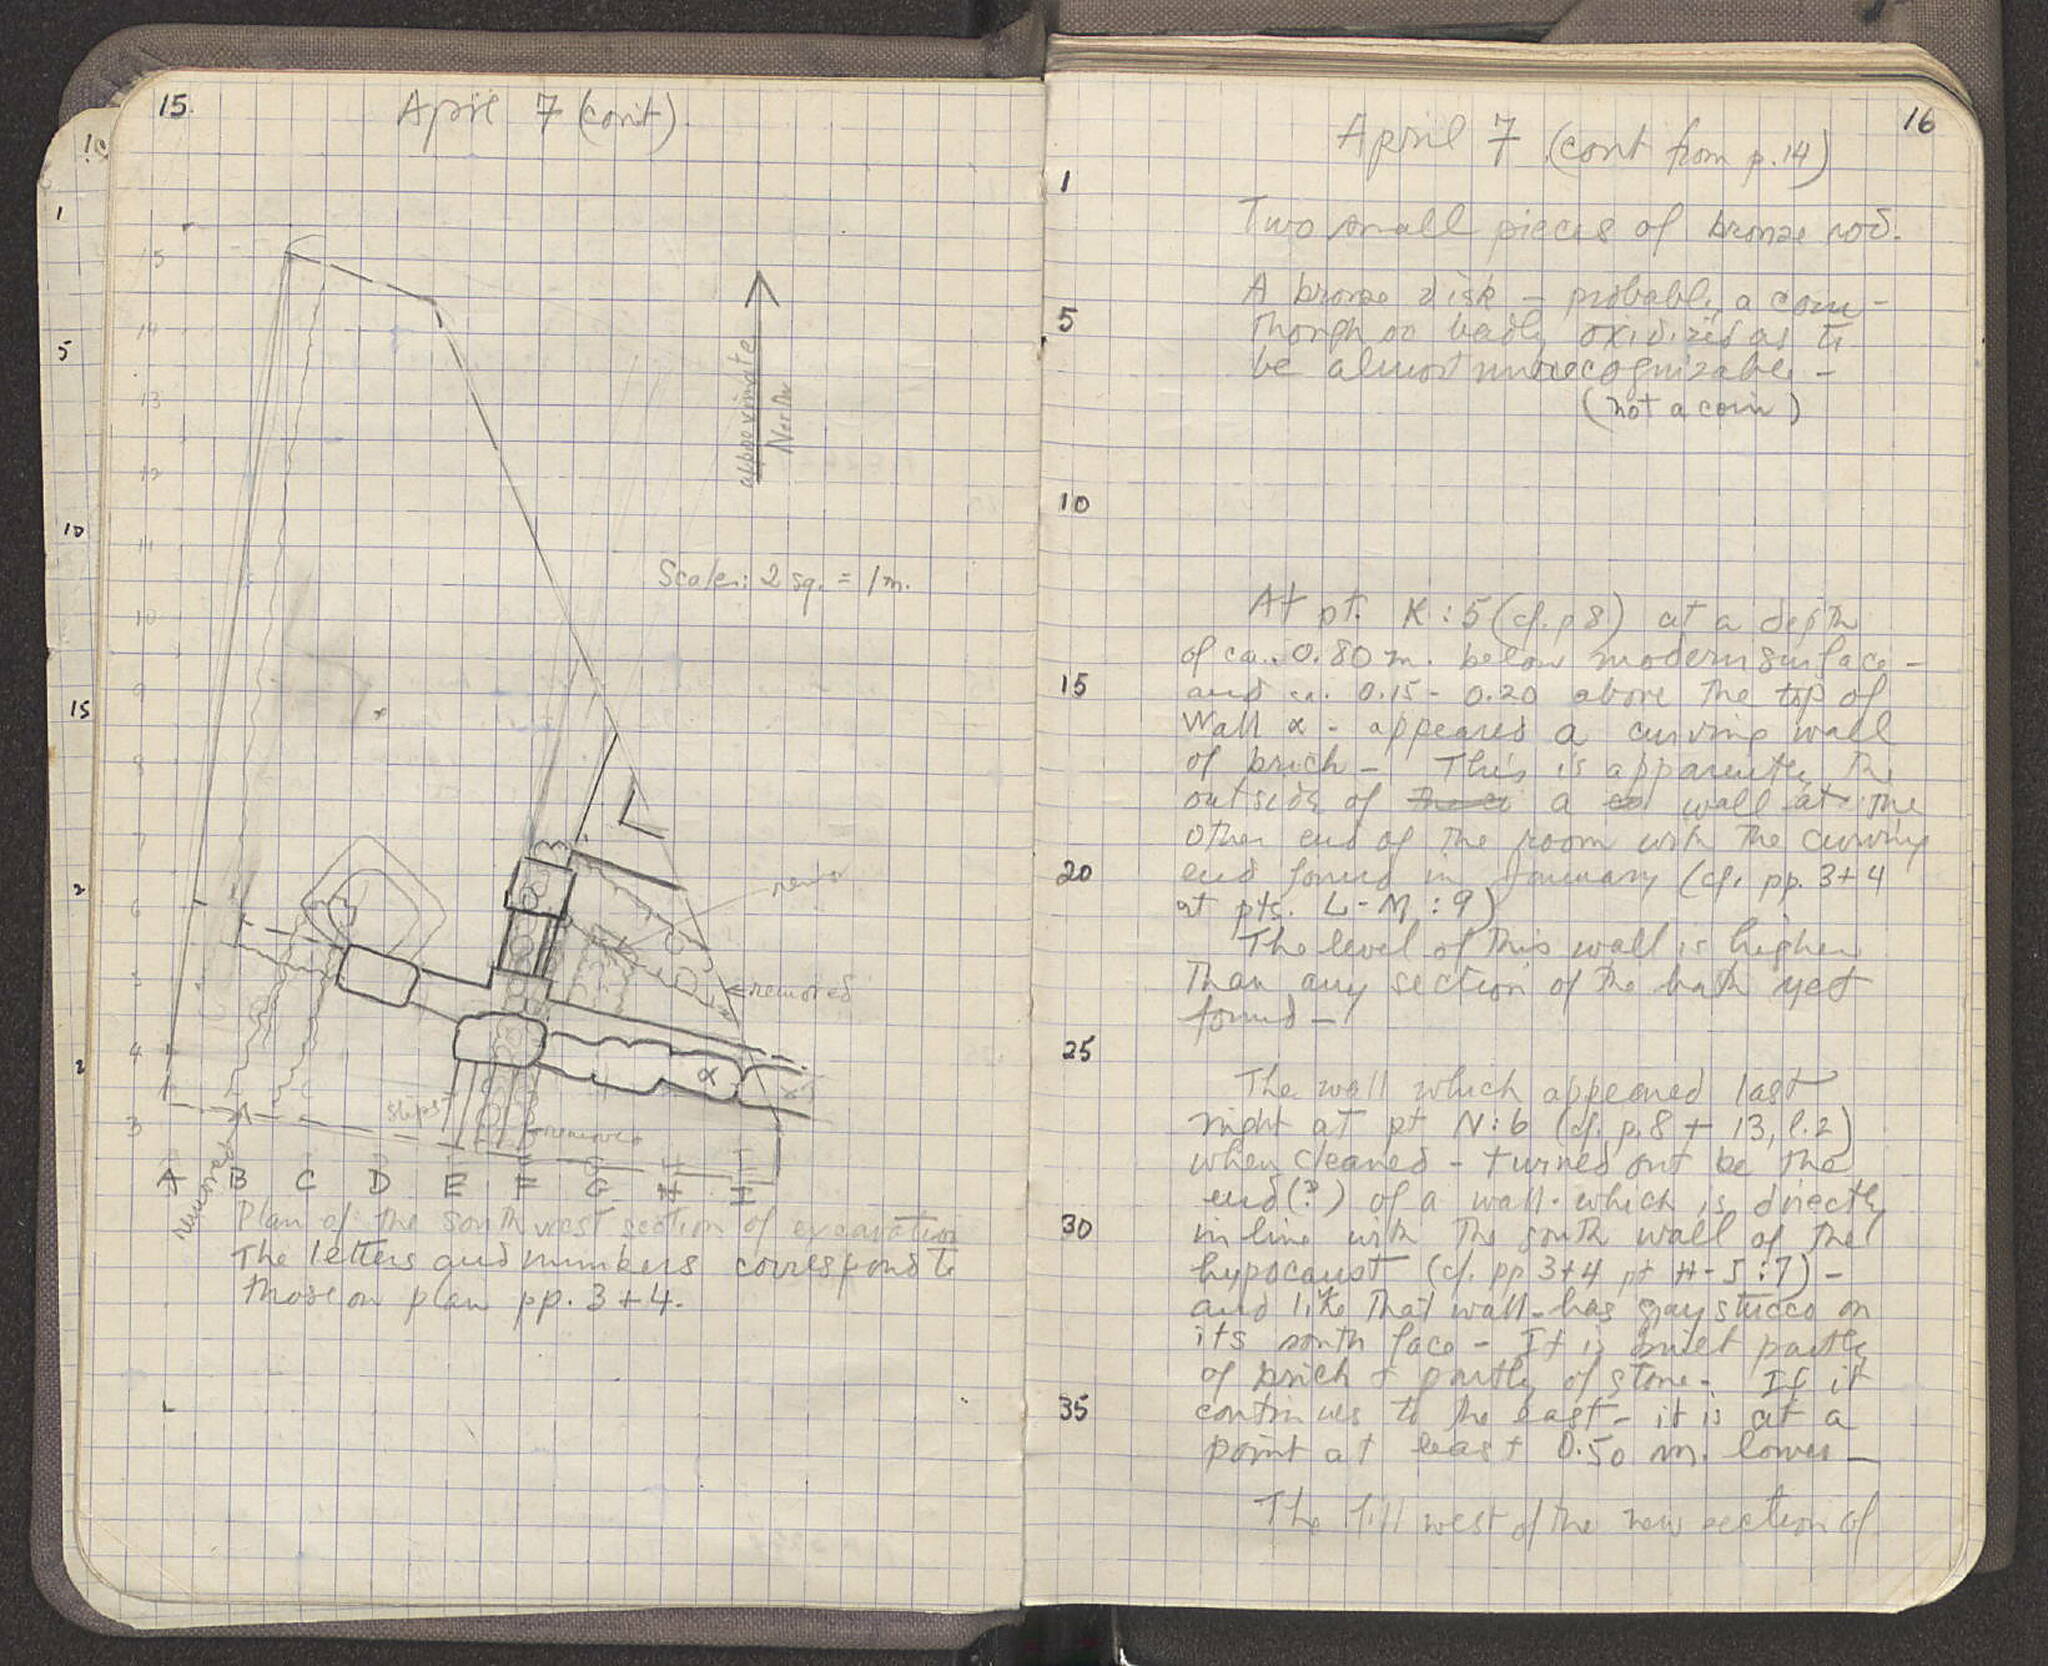 15.
April 7 (cont)
15
14
13
12
11
10
9
8
7
6
5
4
3
approximate
North
Scale: 2 sq. = 1 m.
removed
α
steps
removed
removed
A B C D E F G H I
Plan of the southwest section of excavation
The letters and numbers correspond to
those on plan pp. 3 + 4.
16
April 7 (cont from p. 14)
1
Two small pieces of bronze rod.
A bronze disk – probably a coin –
5
though so badly oxidized as to
be almost unrecognizable –
(not a coin)
10
At pt. K : 5 (cf. p 8) at a depth
of ca. 0.80 m. below modern surface –
15
and ca. 0.15 - 0.20 above the top of
Wall α - appeared a curving wall
of brick – This is apparently the
outside of a wall at the
other end of the room with the curving
20
end found in January (cf. pp. 3 + 4
at pts. L - M : 9)
The level of this wall is higher
than any section of the bath yet
found –
25
The wall which appeared last
night at pt N : 6 (cf. p. 8 + 13, l. 2)
when cleaned - turned out be the
end (?) of a wall - which is directly
30
in line with the south wall of the
hypocaust (cf. pp 3 + 4 pt H - J : 7) –
and like that wall - has gray stucco on
its south face – It is built partly
of brick + partly of stone – If it
35
continues to the east – it is at a
point at least 0.50 m. lower –
The fill west of the new section of